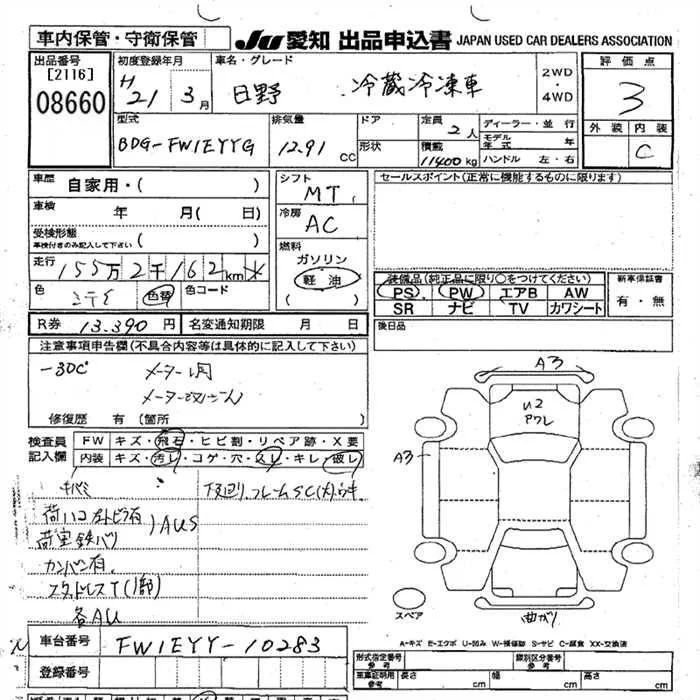 車内保管・守衛保管
JU 愛知 出品申込書 JAPAN USED CAR DEALERS ASSOCIATION
出品番号
[2116]
08660
初度登録年月
H 21 年 3月
車名・グレード
日野 冷蔵冷凍車
2WD
・
4WD
評価点
3
外装 内装
C
型式
BDG-FW1EYYG
排気量
12.91 CC
ドア
形状
定員 2人
積載 11400kg
ディーラー・並行
モデル年式 年
ハンドル 左・右
車歴 自家用・( )
車検 年 月( 日)
受検形態
車検付きのみ記入して下さい ( )
走行 155万2千162km
色 色替 色コード
シフト
MT
冷房
AC
燃料
ガソリン
軽油
( )
セールスポイント(正常に機能するものに限ります)
装備品(純正品に限り○をつけてください)
PS PW エアB AW
SR ナビ TV カワシート
新車保証書
有・無
R券 13.390円 名変通知期限 月 日
後日品
注意事項申告欄(不具合内容等は具体的に記入して下さい)
-30℃
修復歴 有(箇所 )
検査員
記入欄
FW キズ・飛石・ヒビ割・リペア跡・X要
内装 キズ・汚レ・コゲ・穴・スレ・キレ・破レ
荷室鉄バリ
カンバン有
各AU
A3
U2
アワレ
A3
曲がり
スペア
A-キズ E-エクボ U-凹み W-補修跡 S-サビ C-腐食 XX-交換済
車台番号 FW1EYY-10283
登録番号
形式指定番号
参考
類別区分番号
参考
車庫証明用
参考
長さ cm 幅 cm 高さ cm